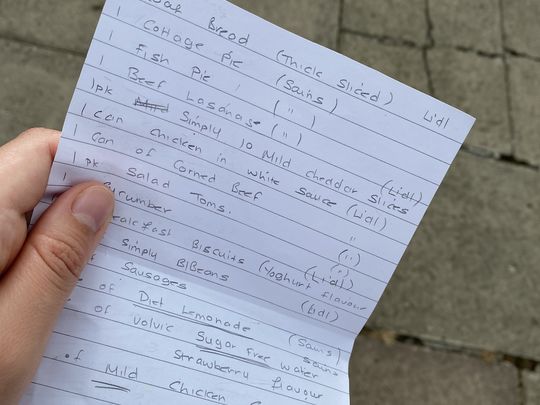 Bread (Thick Sliced) Lidl
1 Cottage Pie (Sains)
1 Fish Pie (")
1 Beef Lasanage (")
1pk Simply 10 Mild cheddar slices (Lidl)
1 can chicken in white sauce (Lidl)
1 can of Corned Beef "
1 pk Salad Toms. (")
1 cucumber (")
Biscuits (Yoghurt flavour (Lidl)
simply B/Beans (Lidl)
Sausages
of Diet Lemonade (Sains)
of volvic Sugar Free water Sains
Strawberry flavour
of Mild Chicken